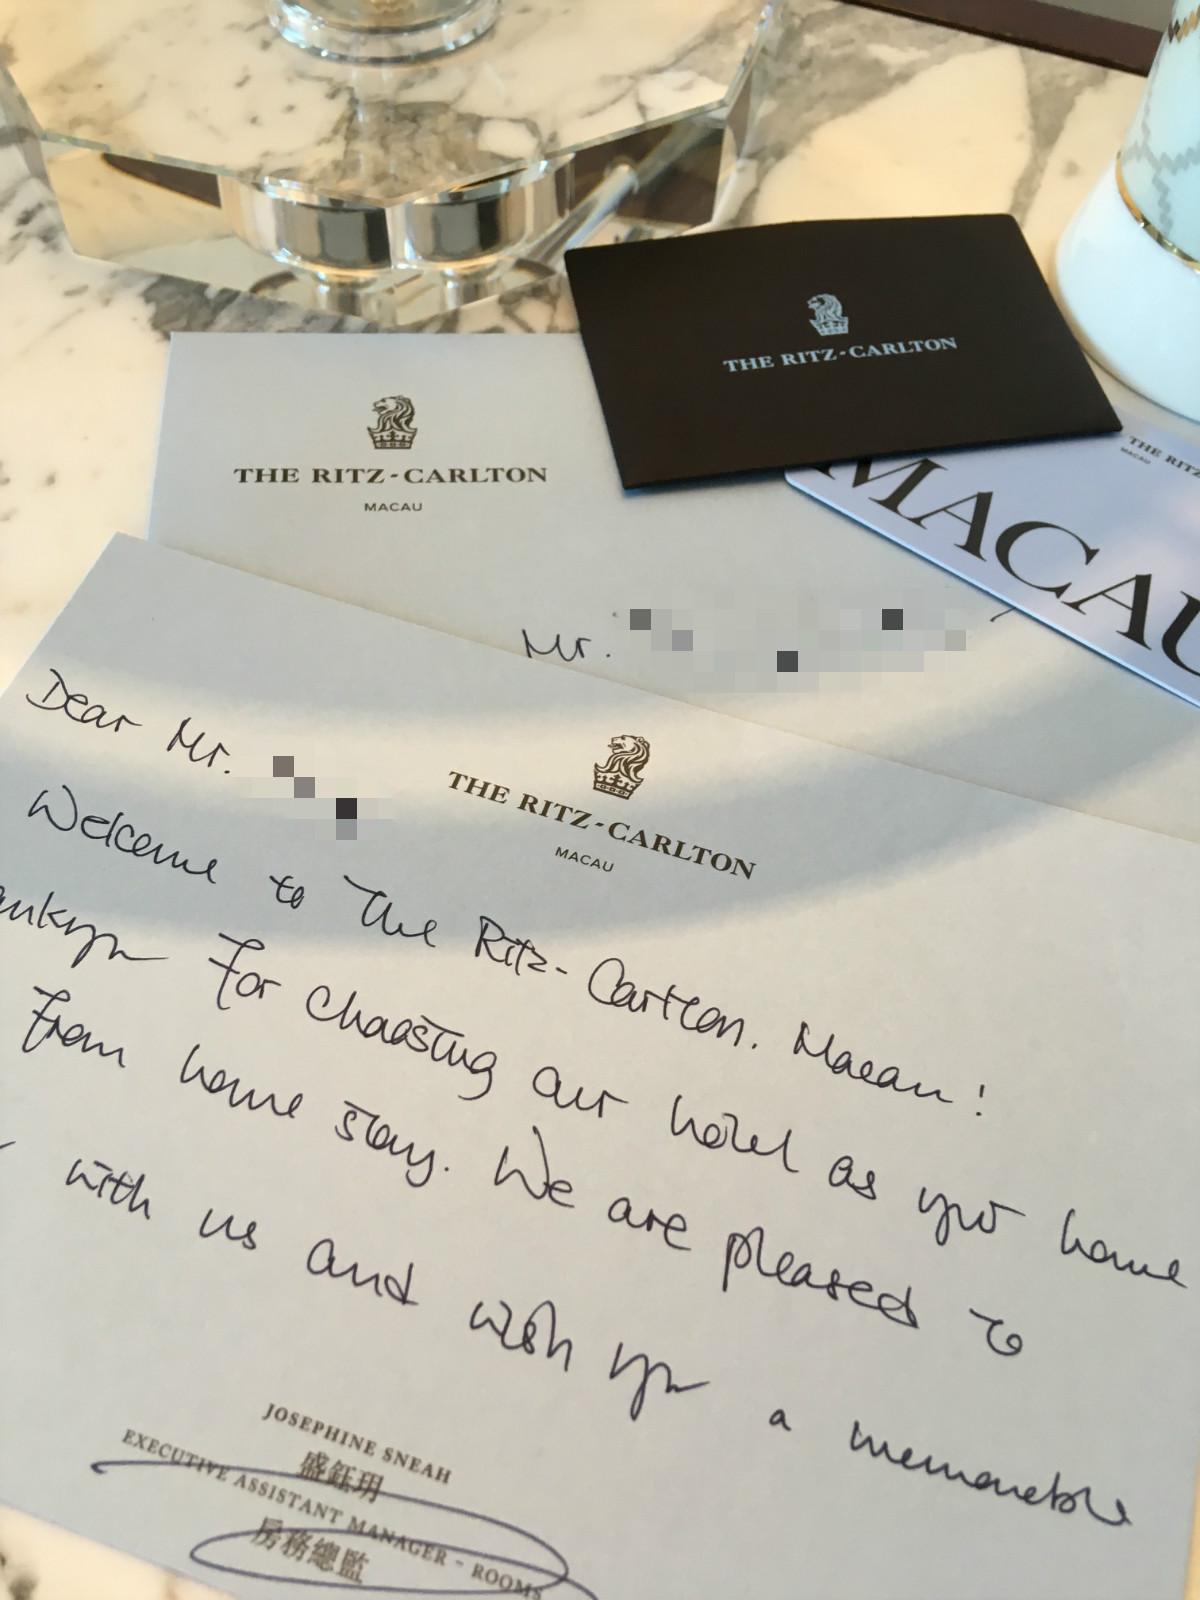 THE RITZ-CARLTON
THE RITZ-CARLTON
MACAU
THE RITZ
MACAU
MACAU
Mr.
THE RITZ-CARLTON
MACAU
Dear Mr.
Welcome to The Ritz-Carlton. Macau!
ankyou for choosing our hotel as your home
from home stay. We are pleased to
with us and wish you a memorable
JOSEPHINE SNEAH
盛鈺玥
EXECUTIVE ASSISTANT MANAGER - ROOMS
房務總監